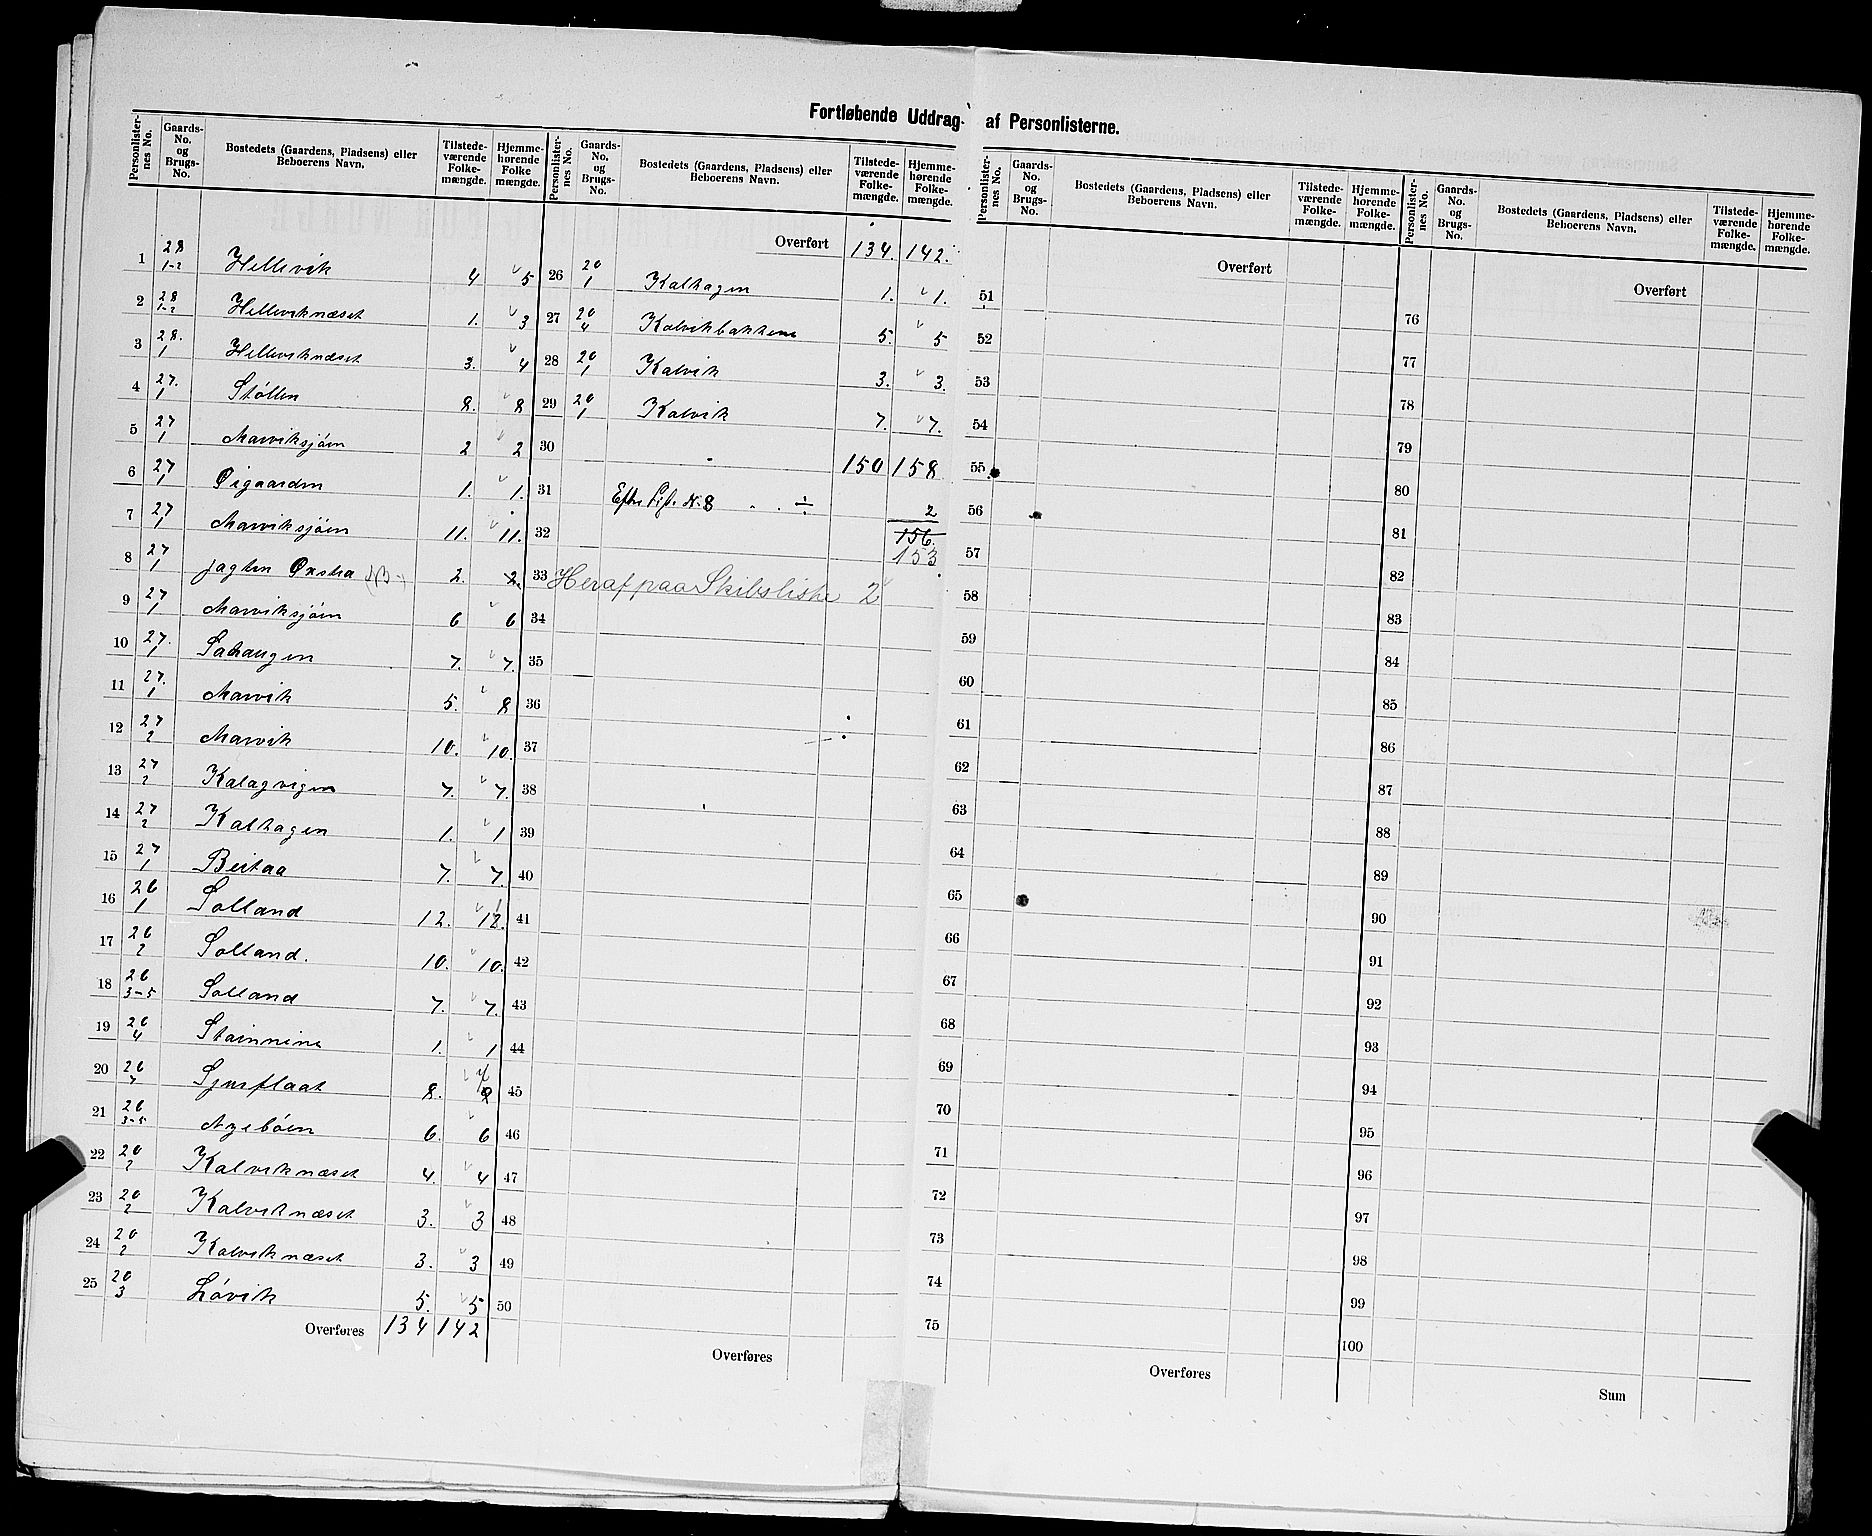 Fortløbende Uddrag af Personlisterne.
Personlisternes No. Gaards-No. og Brugs-No. Bostedets (Gaardens, Pladsens) eller Beboerens Navn. Tilstedeværende Folkemængde. Hjemmehørende Folkemængde.
1 28 1-2 Hellevik 4 5
2 28 1-2 Helleviknæset 1. 3
3 28. 1 Helleviknæset 3. 4
4 27. 1 Stölen 8. 8
5 27 1 Marviksjöen 2 2
6 27 1 Øigaarden 1. 1.
7 27 1 Marviksjöen 11. 11.
8 27 1 Jagten Oxstra 2. 2.
9 27 1 Marviksjöen 6 6
10 27. 1 Sahaugen 7. 7.
11 27. 1 Marvik 5. 8
12 27 2 Marvik 10. 10.
13 27 2 Kalagvigen 7. 7.
14 27 2 Kalhagen 1. 1
15 27 1 Beitaa 7. 7.
16 26 1 Solland 12. 12.
17 26 2 Solland. 10. 10.
18 26 3-5 Solland 7. 7.
19 26 4 1. 1
20 26 7 8.
21 26 3-5 6. 6
22 20 2 Kalviknæset 4. 4
23 20 2 Kalviknæset 3. 3
24 20 2 Kalviknæset 3. 3
25 20 3 Lövik 5. 5
Overføres 134 142
Personlisternes No. Gaards-No. og Brugs-No. Bostedets (Gaardens, Pladsens) eller Beboerens Navn. Tilstedeværende Folkemængde. Hjemmehørende Folkemængde.
Overført 134. 142.
26 20 1 Kalhagen 1. 1.
27 20 4 Kalvikbakken 5. 5
28 20 1 Kalvik 3. 3.
29 20 1 Kalvik 7. 7.
30 150 158
31 No. 8 ÷ 2
32 156.
153
33 Heraf paa Skibsliste 2
34
35
36
37
38
39
40
41
42
43
44
45
46
47
48
49
50
Overføres
Personlisternes No. Gaards-No. og Brugs-No. Bostedets (Gaardens, Pladsens) eller Beboerens Navn. Tilstedeværende Folkemængde. Hjemmehørende Folkemængde.
Overført
51
52
53
54
55
56
57
58
59
60
61
62
63
64
65
66
67
68
69
70
71
72
73
74
75
Overføres
Personlisternes No. Gaards-No. og Brugs-No. Bostedets (Gaardens, Pladsens) eller Beboerens Navn. Tilstedeværende Folkemængde. Hjemmehørende Folkemængde.
Overført
76
77
78
79
80
81
82
83
84
85
86
87
88
89
90
91
92
93
94
95
96
97
98
99
100
Sum